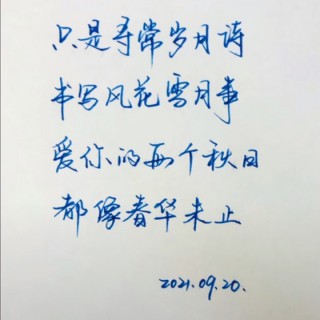 只是寻常岁月诗
书写风花雪月事
爱你的每个秋日
都像春华未止
2021.09.20.